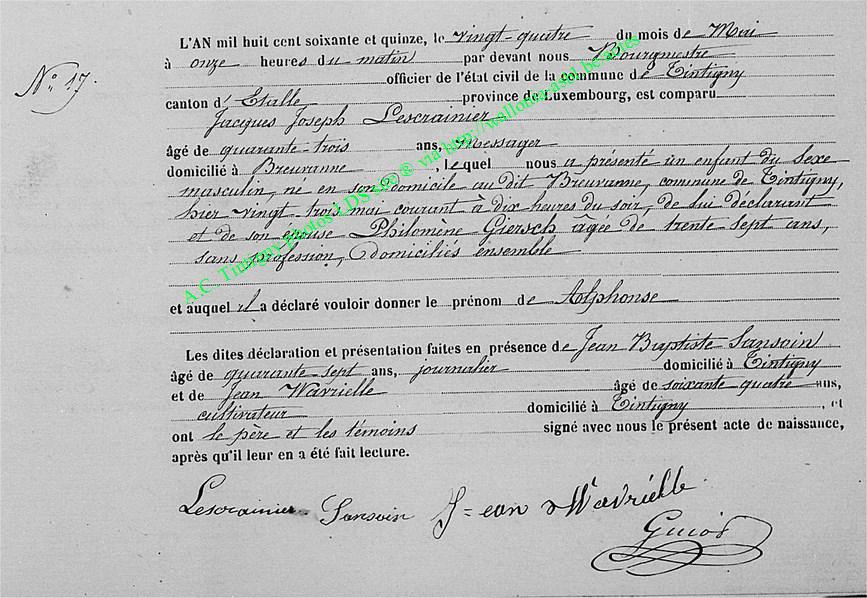 L'AN mil huit cent soixante et quinze, le vingt-quatre du mois de Mai
à onze heures du matin par devant nous Bourgmestre
officier de l'état civil de la commune de Tintigny
N° 17.
canton d'Etalle province de Luxembourg, est comparu
Jacques Joseph Lescrainier
âgé de quarante-trois ans, Messager
domicilié à Breuvanne, lequel nous a présenté un enfant du sexe
masculin, né en son domicile au dit Breuvanne, commune de Tintigny,
hier vingt trois mai courant à dix heures du soir, de lui déclarant
et de son épouse Philomène Giersch âgée de trente sept ans,
sans profession, domiciliés ensemble
et auquel il a déclaré vouloir donner le prénom de Alphonse
Les dites déclaration et présentation faites en présence de Jean Baptiste Sansoin
âgé de quarante-sept ans, journalier domicilié à Tintigny
et de Jean Wavrielle âgé de soixante quatre ans,
cultivateur domicilié à Tintigny, et
ont le père et les témoins signé avec nous le présent acte de naissance,
après qu'il leur en a été fait lecture.
Lescrainier Sansoin J=ean Wavrielle
Guiot
A.C. Tintigny photos LDS ® via http://wallonia-asbl.be/actes